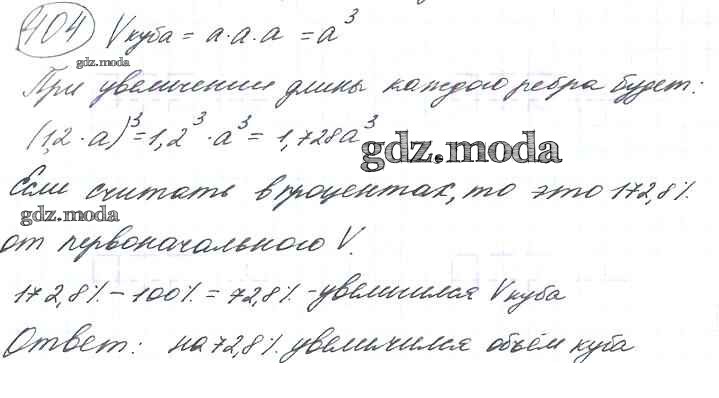 404 Vкуба = a·a·a = a³
gdz.moda
При увеличении длины каждого ребра будет:
(1,2·a)³ = 1,2³·a³ = 1,728a³
gdz.moda
Если считать в процентах, то это 172,8%
gdz.moda
от первоначального V.
172,8% – 100% = 72,8% - увеличился Vкуба
Ответ: на 72,8% увеличился объём куба